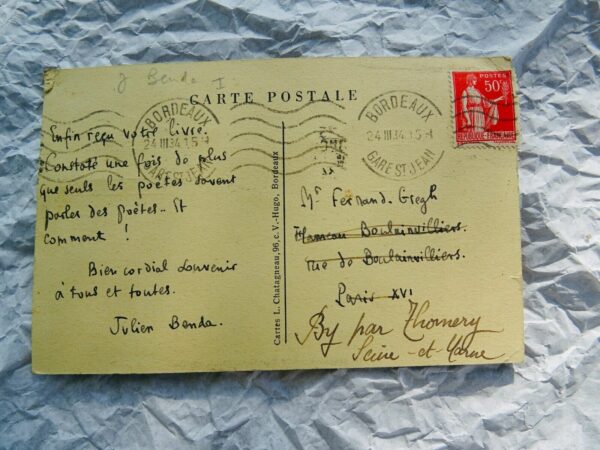 J Benda I
CARTE POSTALE
BORDEAUX
24 III 34 15-H
GARE ST JEAN
BORDEAUX
24 III 34 15-H
GARE ST JEAN
POSTES
50c
REPUBLIQUE FRANCAISE
Enfin reçu votre livre.
Constaté une fois de plus
que seuls les poètes savent
parler des poètes.. Et
comment !
Bien cordial souvenir
à tous et toutes.
Julien Benda.
Cartes L. Chatagneau, 96, c. V.-Hugo, Bordeaux
Mr Fernand-Gregh
Hameau Boulainvilliers.
rue de Boulainvilliers.
Paris XVI
By par Thomery
Seine-et-Marne